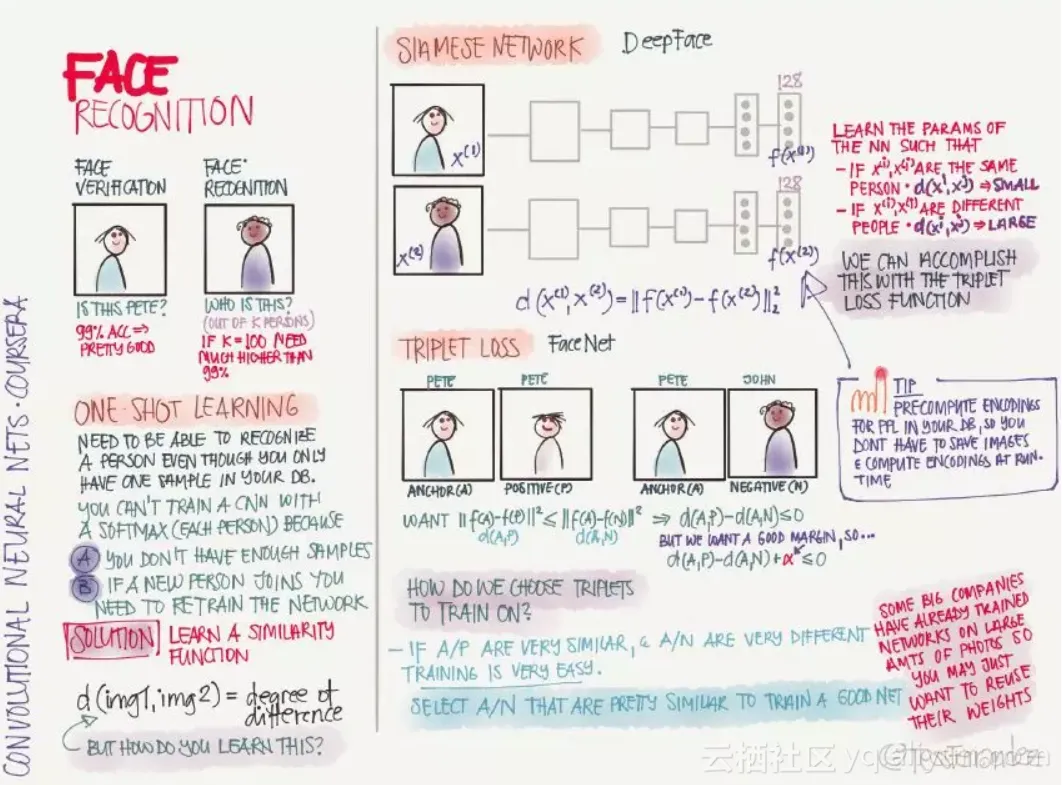 CONVOLUTIONAL NEURAL NETS · COURSERA
FACE
RECOGNITION
FACE
VERIFICATION
IS THIS PETE?
99% ACC ⇒
PRETTY GOOD
FACE
RECOGNITION
WHO IS THIS?
(OUT OF K PERSONS)
IF K=100 NEED
MUCH HIGHER THAN
99%
ONE-SHOT LEARNING
NEED TO BE ABLE TO RECOGNIZE
A PERSON EVEN THOUGH YOU ONLY
HAVE ONE SAMPLE IN YOUR DB.
YOU CAN'T TRAIN A CNN WITH
A SOFTMAX (EACH PERSON) BECAUSE
A YOU DON'T HAVE ENOUGH SAMPLES
B IF A NEW PERSON JOINS YOU
NEED TO RETRAIN THE NETWORK
SOLUTION LEARN A SIMILARITY
FUNCTION
d(img1, img2) = degree of
difference
BUT HOW DO YOU LEARN THIS?
SIAMESE NETWORK DeepFace
128
x⁽¹⁾ f(x⁽¹⁾)
128
x⁽²⁾ f(x⁽²⁾)
d(x⁽¹⁾, x⁽²⁾) = ‖f(x⁽¹⁾) - f(x⁽²⁾)‖₂²
LEARN THE PARAMS OF
THE NN SUCH THAT
- IF x⁽ⁱ⁾, x⁽ʲ⁾ ARE THE SAME
PERSON · d(xⁱ, xʲ) ⇒ SMALL
- IF x⁽ⁱ⁾, x⁽ʲ⁾ ARE DIFFERENT
PEOPLE · d(xⁱ, xʲ) ⇒ LARGE
WE CAN ACCOMPLISH
THIS WITH THE TRIPLET
LOSS FUNCTION
TRIPLET LOSS FaceNet
PETE PETE PETE JOHN
ANCHOR (A) POSITIVE (P) ANCHOR (A) NEGATIVE (N)
WANT ‖f(A)-f(P)‖² ≤ ‖f(A)-f(N)‖² ⇒ d(A,P)-d(A,N) ≤ 0
d(A,P) d(A,N) BUT WE WANT A GOOD MARGIN, SO...
d(A,P)-d(A,N)+α ≤ 0
TIP
PRECOMPUTE ENCODINGS
FOR PPL IN YOUR DB, SO YOU
DONT HAVE TO SAVE IMAGES
& COMPUTE ENCODINGS AT RUN-
TIME
HOW DO WE CHOOSE TRIPLETS
TO TRAIN ON?
- IF A/P ARE VERY SIMILAR, & A/N ARE VERY DIFFERENT
TRAINING IS VERY EASY.
SELECT A/N THAT ARE PRETTY SIMILAR TO TRAIN A GOOD NET
SOME BIG COMPANIES
HAVE ALREADY TRAINED
NETWORKS ON LARGE
AMTS OF PHOTOS SO
YOU MAY JUST
WANT TO REUSE
THEIR WEIGHTS
@TessFerrandez
云栖社区